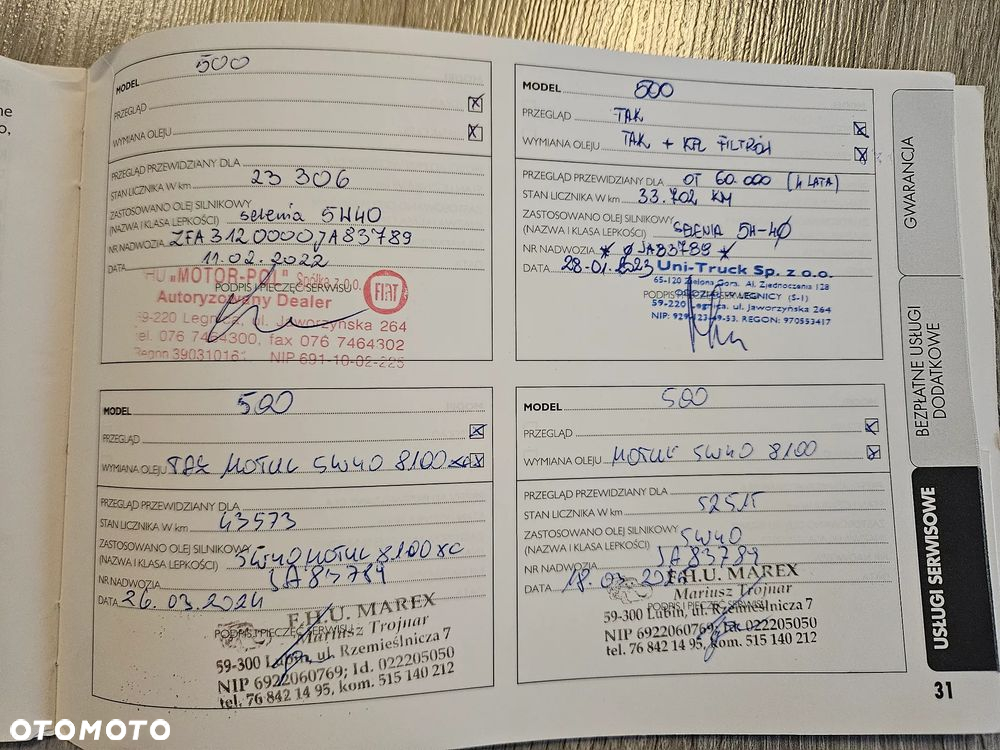 ne
o,
MODEL 500
PRZEGLĄD
WYMIANA OLEJU
PRZEGLĄD PRZEWIDZIANY DLA
STAN LICZNIKA W km 23 306
ZASTOSOWANO OLEJ SILNIKOWY
(NAZWA I KLASA LEPKOŚCI) selenia 5W40
NR NADWOZIA ZFA3120000JA83789
DATA 11.02.2022
"MOTOR-POL" Spółka z o.o.
PODPIS I PIECZĘĆ SERWISU
FIAT
Autoryzowany Dealer
59-220 Legnica, ul. Jaworzyńska 264
tel. 076 7464300, fax 076 7464302
Regon 390310161 NIP 691-10-02-225
MODEL 500
PRZEGLĄD TAK
WYMIANA OLEJU TAK + KPL FILTRÓW
PRZEGLĄD PRZEWIDZIANY DLA OT 60.000 (4 LATA)
STAN LICZNIKA W km 33.702 KM
ZASTOSOWANO OLEJ SILNIKOWY
(NAZWA I KLASA LEPKOŚCI) SELENIA 5W-40
NR NADWOZIA * 0JA83789 *
DATA 28.01.2023 Uni-Truck Sp. z o.o.
65-120 Zielona Góra, Al. Zjednoczenia 128
PODPIS I PIECZĘĆ SERWISU
ODDZIAŁ W LEGNICY (S-1)
59-220 Legnica, ul. Jaworzyńska 264
NIP: 929-123-49-53, REGON: 970553417
MODEL 500
PRZEGLĄD
WYMIANA OLEJU TAK MOTUL 5W40 8100 xc
PRZEGLĄD PRZEWIDZIANY DLA
STAN LICZNIKA W km 43573
ZASTOSOWANO OLEJ SILNIKOWY
(NAZWA I KLASA LEPKOŚCI) 5W40 MOTUL 8100 XC
NR NADWOZIA JA83789
DATA 26.03.2024
F.H.U. MAREX
PODPIS I PIECZĘĆ SERWISU
Mariusz Trojnar
59-300 Lubin, ul. Rzemieślnicza 7
NIP 6922060769; Id. 022205050
tel. 76 842 14 95, kom. 515 140 212
MODEL 500
PRZEGLĄD
WYMIANA OLEJU MOTUL 5W40 8100
PRZEGLĄD PRZEWIDZIANY DLA
STAN LICZNIKA W km 52515
ZASTOSOWANO OLEJ SILNIKOWY
(NAZWA I KLASA LEPKOŚCI) 5W40
NR NADWOZIA JA83789
DATA 18.03.
F.H.U. MAREX
Mariusz Trojnar
PODPIS I PIECZĘĆ SERWISU
59-300 Lubin, ul. Rzemieślnicza 7
NIP 6922060769; Id. 022205050
tel. 76 842 14 95, kom. 515 140 212
GWARANCJA
BEZPŁATNE USŁUGI
DODATKOWE
USŁUGI SERWISOWE
31
OTOMOTO